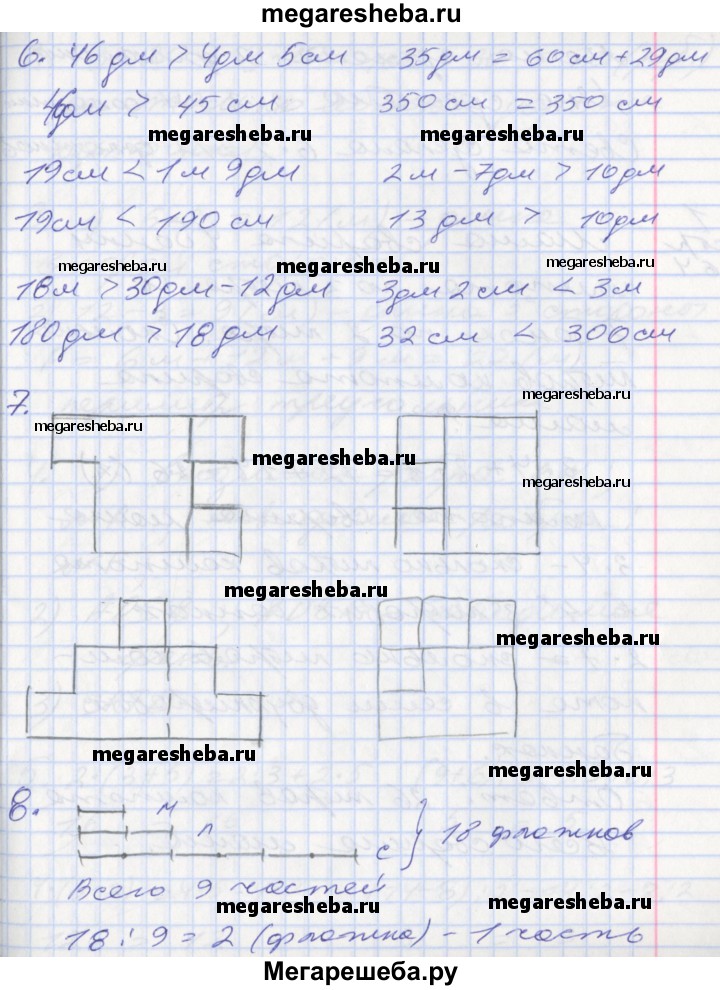 megaresheba.ru
6. 46 дм > 4дм 5см 35дм = 60см + 29дм
46дм > 45 см 350 см = 350 см
megaresheba.ru megaresheba.ru
19см < 1м 9дм 2м - 7дм > 10дм
19см < 190 см 13 дм > 10дм
megaresheba.ru megaresheba.ru megaresheba.ru
18м > 30дм - 12дм 3дм 2см < 3м
180дм > 18дм 32см < 300см
7.
megaresheba.ru
megaresheba.ru megaresheba.ru
megaresheba.ru
megaresheba.ru
megaresheba.ru
megaresheba.ru
megaresheba.ru
8. м
л
с } 18 флажков
megaresheba.ru
Всего 9 частей
megaresheba.ru megaresheba.ru
18 : 9 = 2 (флажка) - 1 часть
Мегарешеба.ру